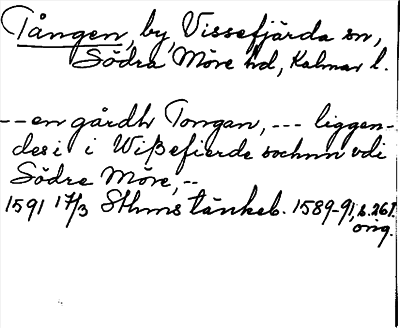 Tången, by, Vissefjärda sn,
Södra Möre hd, Kalmar l.
-- en gårdh Tongan, --- liggen-
des i i Wißefierde sochnn vdi
Södre Möre, --
1591 17/3 Sthms tänkeb. 1589-91, s. 261.
orig.